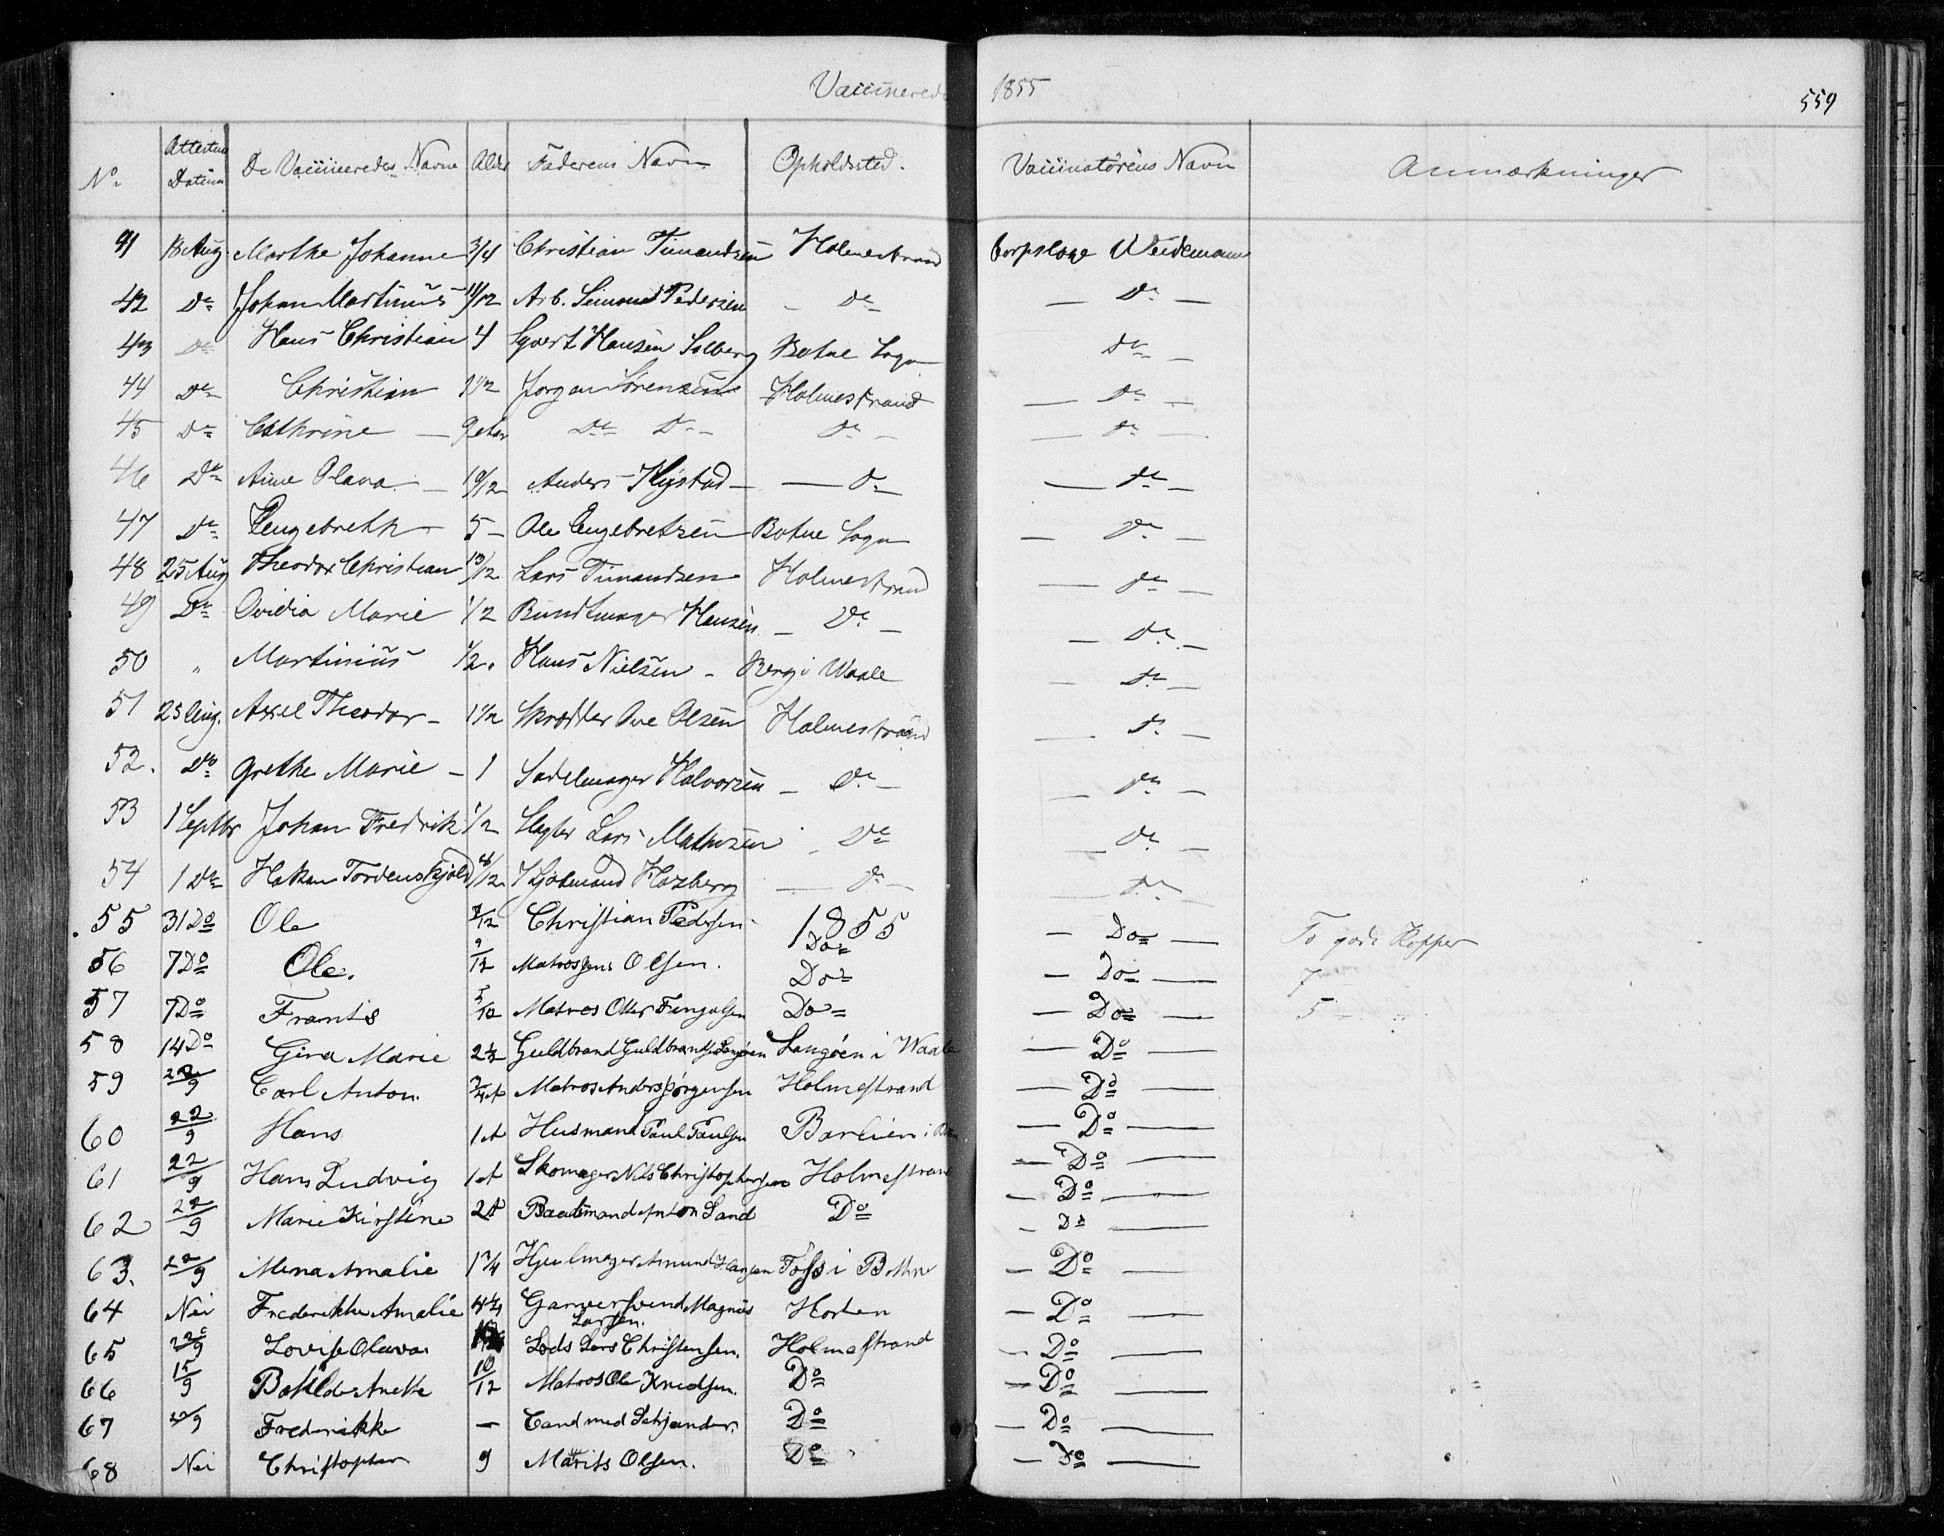 Vaccinerede 1855
559
No. Attestens Datum De Vaccineredes Navne Alder Faderens Navn Opholdssted. Vaccinatörens Navn Anmærkninger
41 18 Aug Marthe Johanne 3/4 Christian Timandsen Holmestrand Corpslæge Weidemann
42 Do Johan Martinus 11/12 Arb. Simond Pedersen - Do - Do -
43 Do Hans Christian 4 Syvert Hansen Solberg Botne Sogn Do -
44 Do Christian 1 1/2 Jørgen Sørensen Holmestrand - Do -
45 Do Cathrine - Do Do - Do - - Do -
46 Do Ane Olava - 10/12 Anders Klystad - - Do - Do -
47 Do Engebreth 5 - Ole Engebretsen Botne Sogn - Do -
48 25 Aug Theodor Christian 10/12 Lars Timandsen Holmestrand - Do -
49 Do Ovidia Marie 1/2 Bundtmager Hansen - Do - - Do -
50 " Martinius 1/2 Hans Nielsen - Berg i Waale - Do -
51 25 Aug. Axel Theodor - 1 1/2 Skrædder Ove Olsen Holmestrand - Do -
52. Do Grethe Marie - 1 Sadelmager Halvorsen - Do - - Do -
53 1 Septbr Johan Fredrik 1/2 Slagter Lars Mathisen - Do - Do -
54 1 Do Hakan Tordenskjold /12 Kjøbmand - Do - - Do -
55 31 Do Ole /12 Christian Pedersen 1855 Do - Do - To gode Kopper
56 7 Do Ole. 9/12 Matros Jens Olsen. Do - Do - 7
57 7 Do Frants 5/12 Matros Do - Do - 5 - "
58 14 Do Gina Marie 2 1/2 Guldbrand Guldbrandsen Langøen Langøen i Waale - Do -
59 22/9 Carl Anton. 3/4 A Matros Anders Jørgensen Holmestrand - Do -
60 22/9 Hans 1 A Husmand Paul Paulsen Barlien i - Do -
61 22/9 Hans Ludvig 1 A Skomager Nils Christophersen Holmestrand - Do -
62 22/9 Marie Kirstine 2 A Baadsmand Anton Sand Do - Do -
- Do -
63. 22/9 Mena Amalie 1 1/4 Hjulmager Amund Hansen Foss i Bothne - Do -
64 Nei Frederikke Amalie Garversvend Magnus Larsen. Horten - Do -
65 22/9 Lovise Olava. Lods Lars Christensen. Holmestrand - Do -
66 15/9 Bothilde Anette 10/12 Matros Ole Knudsen. Do - Do -
67 22/9 Frederikke - Cand med Schjander. Do - Do -
68 Nei Christopher 9 Marits Olsen. Do - Do -